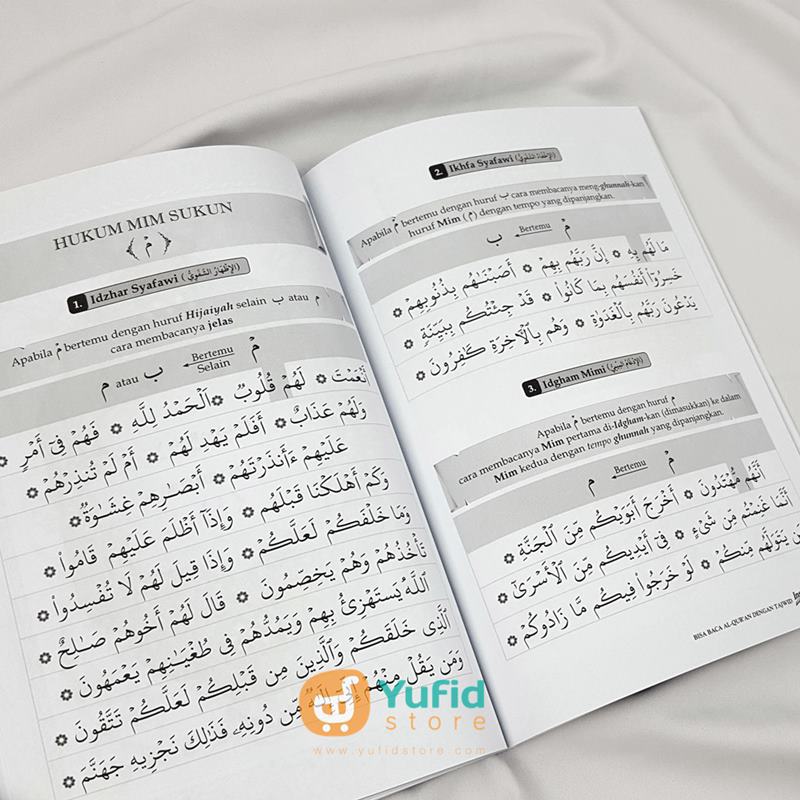 HUKUM MIM SUKUN
﴿ مْ ﴾
1. Idzhar Syafawi (الإِظْهَارُ الشَّفَوِيُّ)
Apabila مْ bertemu dengan huruf Hijaiyah selain ب atau م
cara membacanya jelas
مْ Bertemu Selain ب atau م
أَنْعَمْتَ ۞ لَهُمْ قُلُوبٌ ۞ الْحَمْدُ لِلَّهِ ۞ فَهُمْ فِىٓ أَمْرٍ ۞
وَلَهُمْ عَذَابٌ ۞ أَفَلَمْ يَهْدِ لَهُمْ ۞ أَمْ لَمْ تُنذِرْهُمْ ۞
عَلَيْهِمْ ءَأَنذَرْتَهُمْ ۞ أَبْصَـٰرِهِمْ غِشَـٰوَةٌ ۞
وَكَمْ أَهْلَكْنَا قَبْلَهُم ۞ وَإِذَآ أَظْلَمَ عَلَيْهِمْ قَامُوا۟ ۞
وَمَا خَلْفَكُمْ لَعَلَّكُمْ ۞ وَإِذَا قِيلَ لَهُمْ لَا تُفْسِدُوا۟ ۞
تَأْخُذُهُمْ وَهُمْ يَخِصِّمُونَ ۞ قَالَ لَهُمْ أَخُوهُمْ صَـٰلِحٌ ۞
ٱللَّهُ يَسْتَهْزِئُ بِهِمْ وَيَمُدُّهُمْ فِى طُغْيَـٰنِهِمْ يَعْمَهُونَ ۞
ٱلَّذِى خَلَقَكُمْ وَٱلَّذِينَ مِن قَبْلِكُمْ لَعَلَّكُمْ تَتَّقُونَ ۞
وَمَن يَقُلْ مِنْهُمْ إِنِّىٓ إِلَـٰهٌ مِّن دُونِهِۦ فَذَٰلِكَ نَجْزِيهِ جَهَنَّمَ ۞
2. Ikhfa Syafawi
Apabila مْ bertemu dengan huruf ب cara membacanya meng-ghunnah-kan
huruf Mim (م) dengan tempo yang dipanjangkan.
مْ Bertemu ب
مَا لَهُم بِهِۦ ۞ إِنَّ رَبَّهُم بِهِمْ ۞ أَصَبْنَـٰهُم بِذُنُوبِهِمْ ۞
خَسِرُوٓا۟ أَنفُسَهُم بِمَا كَانُوا۟ ۞ قَدْ جِئْتُكُم بِبَيِّنَةٍ ۞
يَدْعُونَ رَبَّهُم بِٱلْغَدَوٰةِ ۞ وَهُم بِٱلْـَٔاخِرَةِ كَـٰفِرُونَ ۞
3. Idgham Mimi
Apabila مْ bertemu dengan huruf م
cara membacanya Mim pertama di-Idgham-kan (dimasukkan) ke dalam
Mim kedua dengan tempo ghunnah yang dipanjangkan.
مْ Bertemu م
أَنَّهُم مُّهْتَدُونَ ۞ أَخْرَجَ أَبَوَيْكُم مِّنَ ٱلْجَنَّةِ ۞
أَنَّمَا غَنِمْتُم مِّن شَىْءٍ ۞ فِىٓ أَيْدِيكُم مِّنَ ٱلْأَسْرَىٰٓ ۞
يَتَوَلَّهُم مِّنكُمْ ۞ لَوْ خَرَجُوا۟ فِيكُم مَّا زَادُوكُمْ ۞
BISA BACA AL-QUR'AN DENGAN TAJWID
Yufid
store
www.yufidstore.com